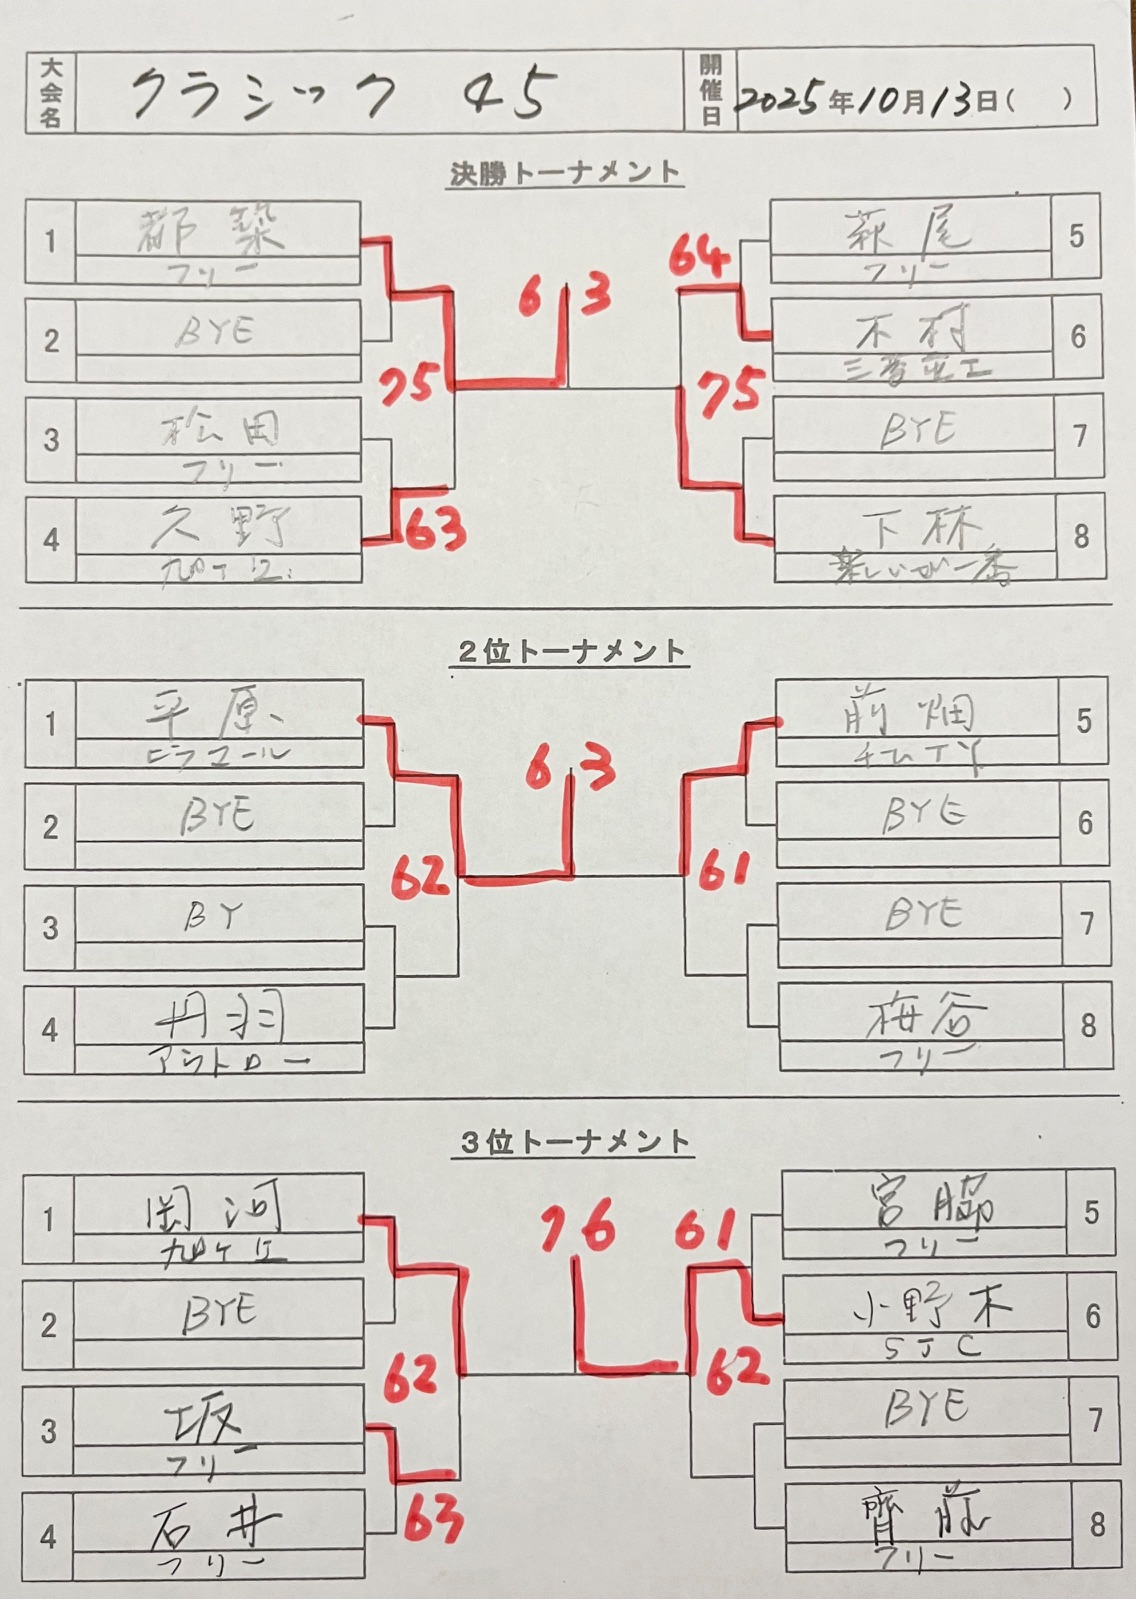 大会名 クラシック 45 開催日 2025年10月13日( )
決勝トーナメント
1 都築
フリー
2 BYE
75
3 松田
フリー
4 久野
63
6 3
64
萩尾 5
フリー
木村 6
三菱電工
75
BYE 7
下林 8
楽しいが一番
2位トーナメント
1 平原
ビラコール
2 BYE
62
3 BY
4 丹羽
アウトロー
6 3
前畑 5
BYE 6
61
BYE 7
梅谷 8
フリー
3位トーナメント
1 岡河
2 BYE
62
3 坂
フリー
63
4 石井
フリー
76
61
宮脇 5
フリー
小野木 6
SJC
62
BYE 7
齊藤 8
フリー